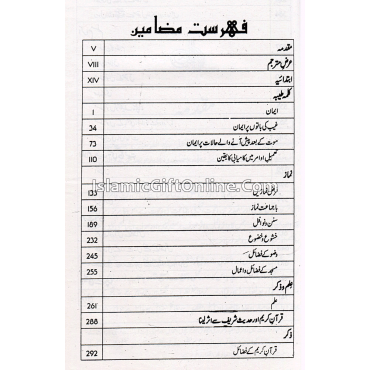 فہرست مضامین
مقدمہ V
عرض مترجم VIII
ابتدائیہ XIV
کلمہ طیبہ
ایمان 1
غیب کی باتوں پر ایمان 34
موت کے بعد پیش آنے والے حالات پر ایمان 73
تعمیل اوامر میں کامیابی کا یقین 110
نماز
IslamicGiftOnline.Com
فرض نمازیں 133
باجماعت نماز 156
سنن و نوافل 189
خشوع و خضوع 232
وضو کے فضائل 245
مسجد کے فضائل و اعمال 255
علم و ذکر
علم 261
قرآن کریم اور حدیث شریف سے اثر لینا 288
ذکر
قرآن کریم کے فضائل 292